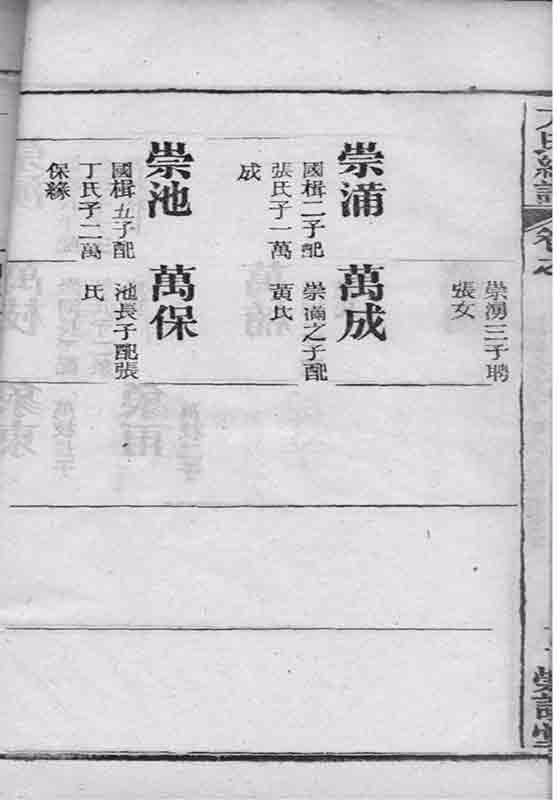 卷之
崇湧三子聘
張女
崇滿
國楫二子配
張氏子一萬
成
萬成
崇滿之子配
黃氏
崇池
國楫五子配
丁氏子二萬
保緣
萬保
池長子配張
氏